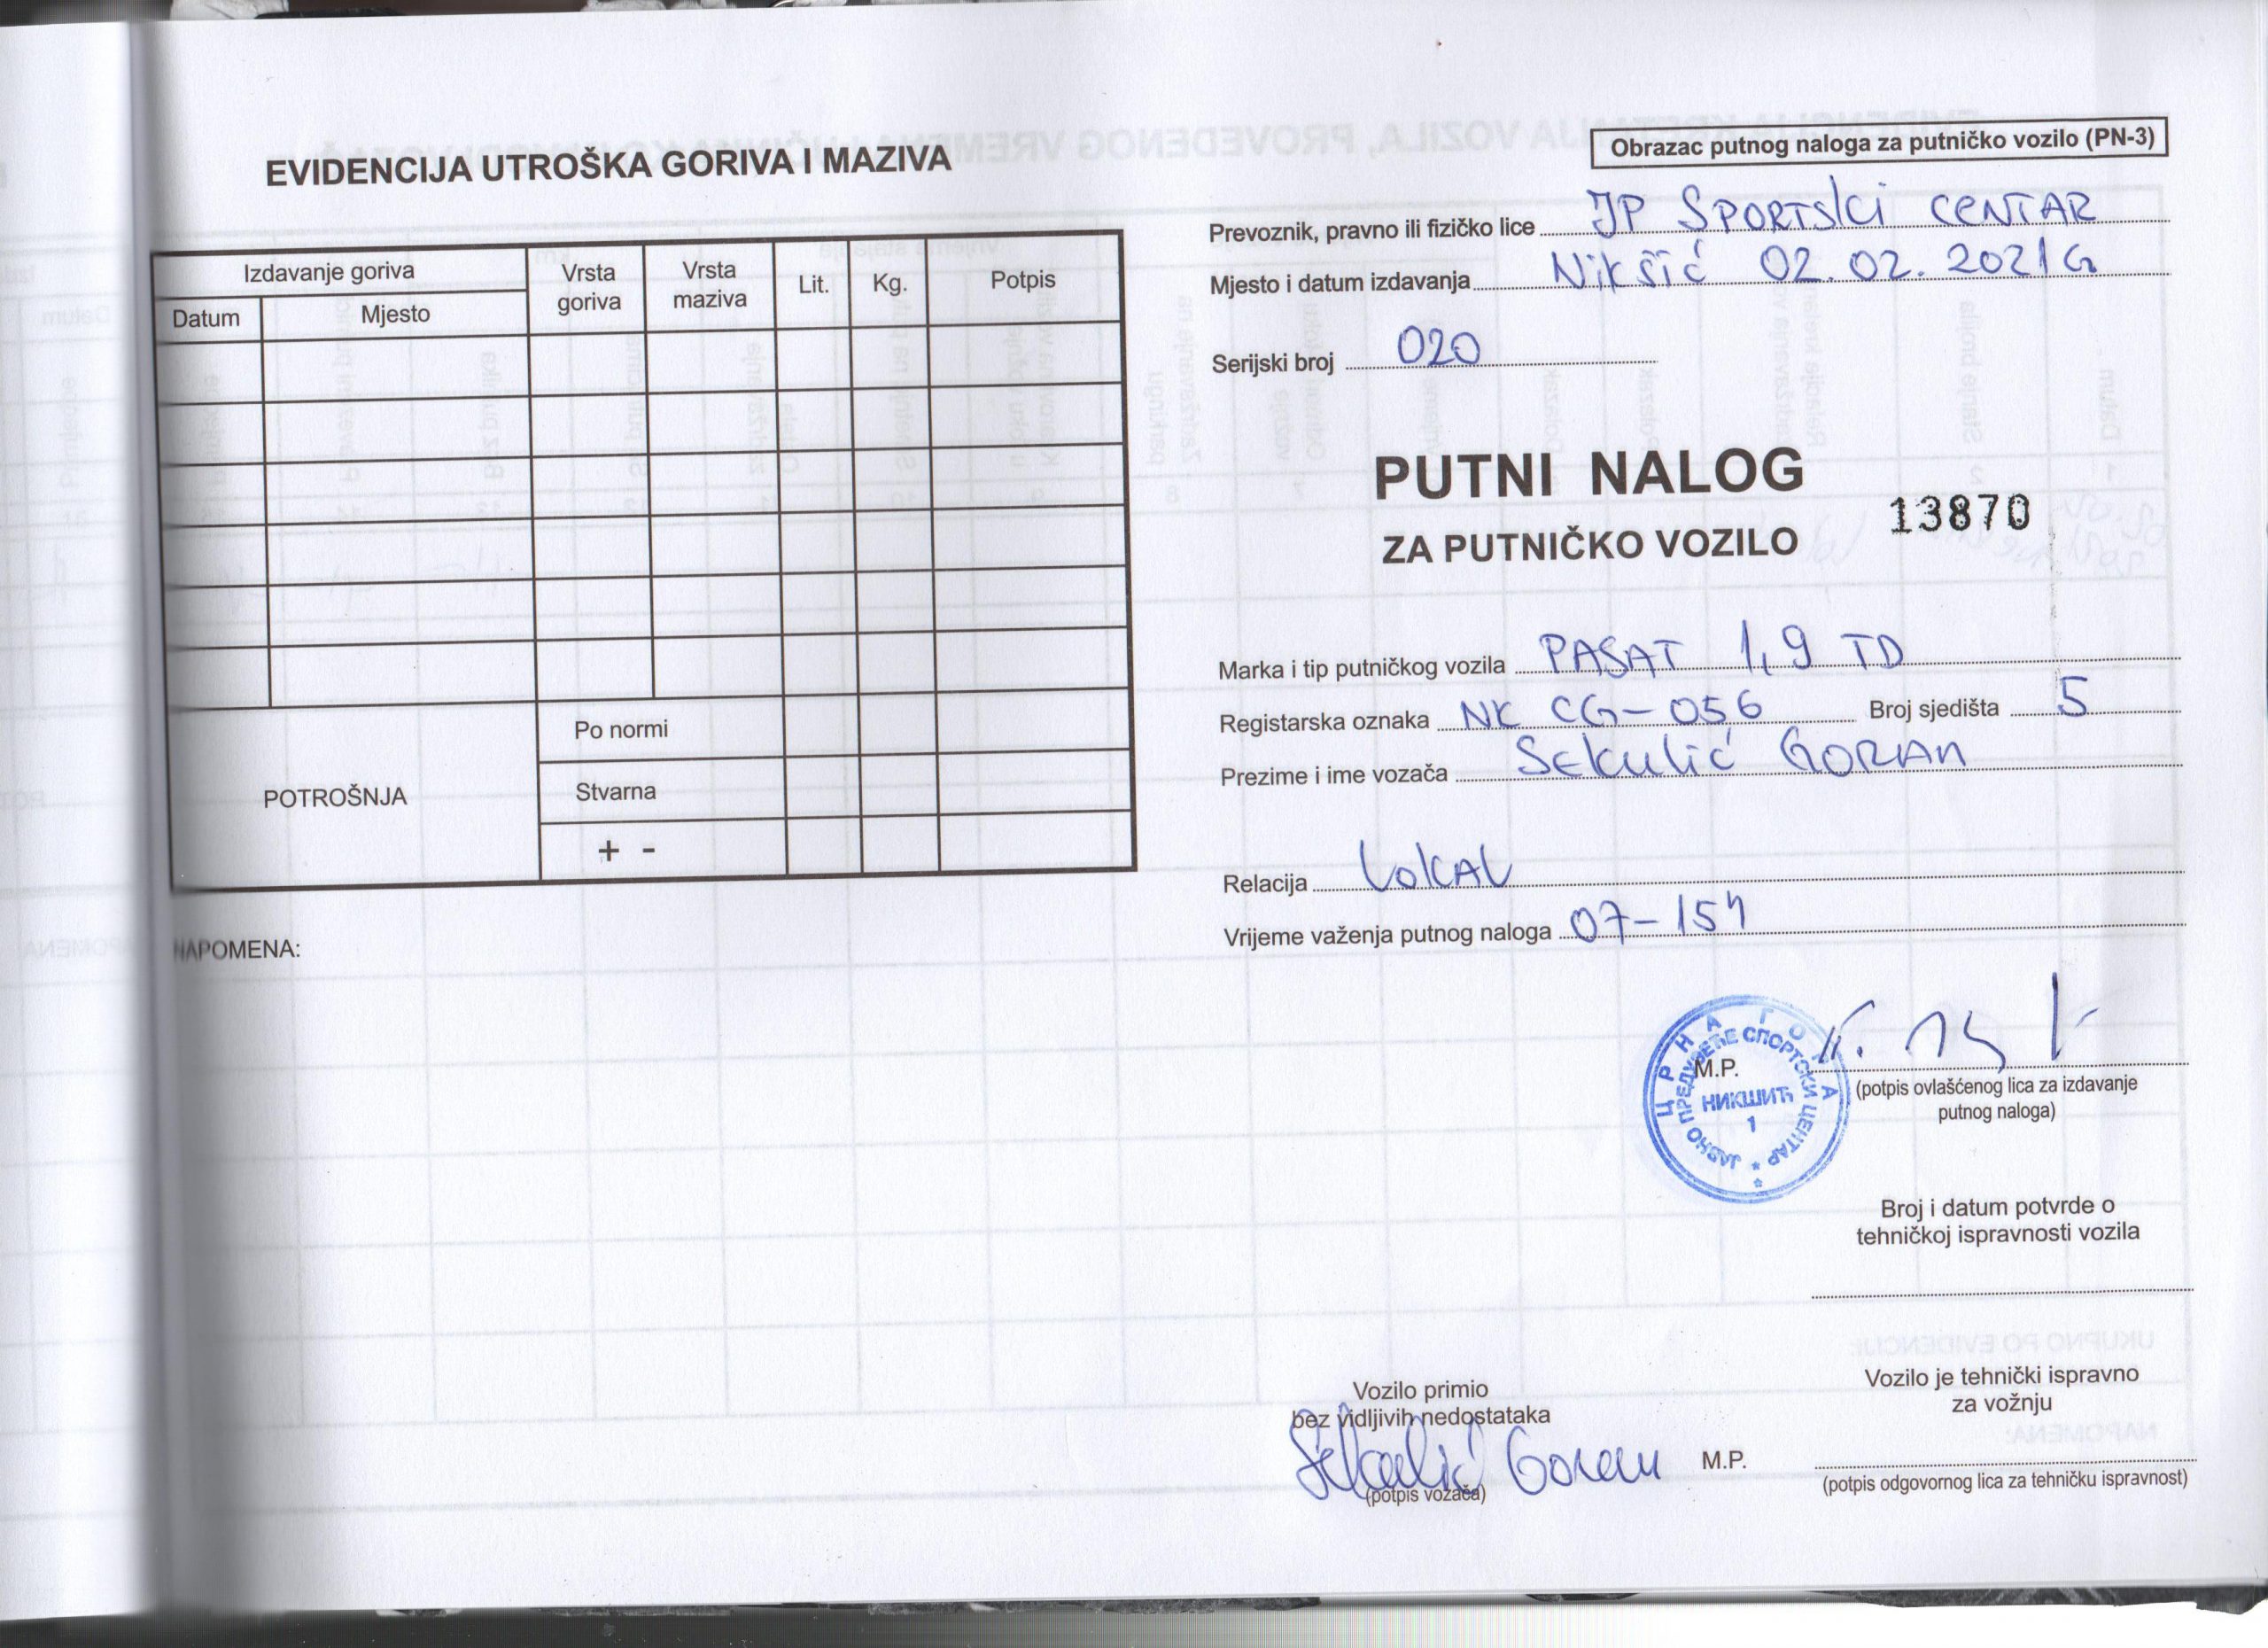 EVIDENCIJA UTROŠKA GORIVA I MAZIVA
Izdavanje goriva
Datum
Mjesto
Vrsta goriva
Vrsta maziva
Lit.
Kg.
Potpis
POTROŠNJA
Po normi
Stvarna
+ -
NAPOMENA:
Obrazac putnog naloga za putničko vozilo (PN-3)
Prevoznik, pravno ili fizičko lice JP SPORTSKI CENTAR
Mjesto i datum izdavanja Nikšić 02.02.2021G
Serijski broj 020
PUTNI NALOG
13870
ZA PUTNIČKO VOZILO
Marka i tip putničkog vozila PASAT 1,9 TD
Registarska oznaka NK CG-056 Broj sjedišta 5
Prezime i ime vozača Sekulić GORAN
Relacija LOKAL
Vrijeme važenja putnog naloga 07-15h
ЦРНА ГОРА
ЈАВНО ПРЕДУЗЕЋЕ СПОРТСКИ ЦЕНТАР
НИКШИЋ
1
M.P.
(potpis ovlašćenog lica za izdavanje
putnog naloga)
Broj i datum potvrde o
tehničkoj ispravnosti vozila
Vozilo primio
bez vidljivih nedostataka
Sekulić Goran
(potpis vozača)
M.P.
Vozilo je tehnički ispravno
za vožnju
(potpis odgovornog lica za tehničku ispravnost)